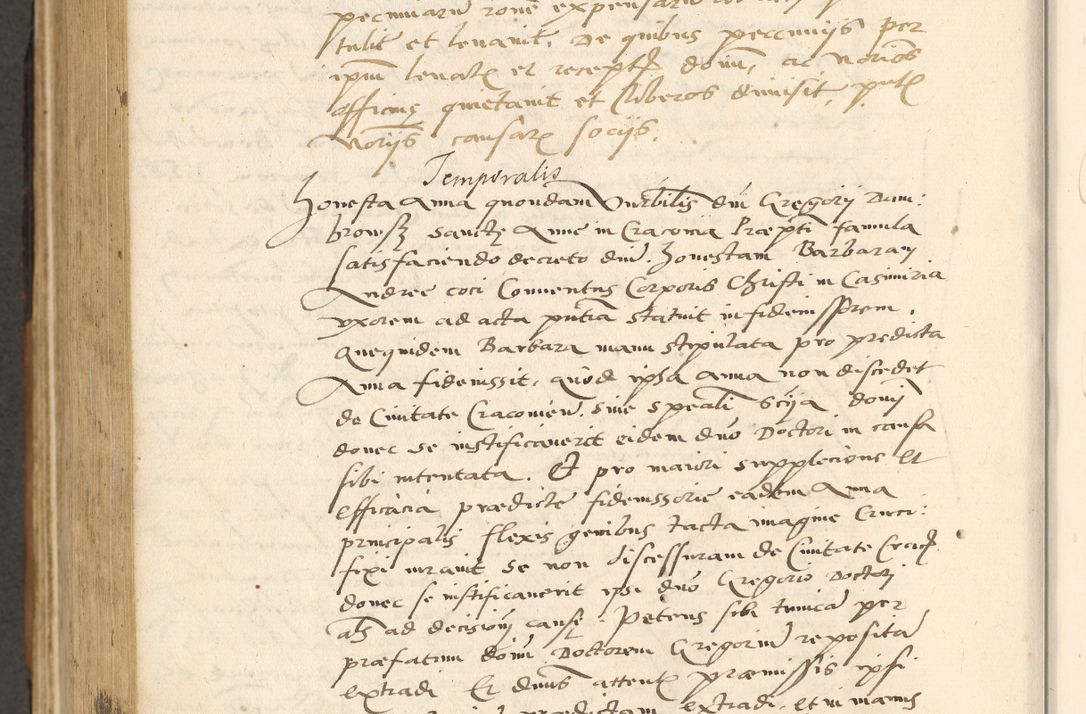 pecuniarum rone expensarum
tulit et levavit. De quibus peccuniis per
ipm levatis et receptis donm, ac Norios
officiis quietavit et liberos dimisit, pntibus
Noriis causarum sociis.
Temporalis
Honesta Anna quondam Venerbilis dni Gregorii Dam:
browsky Sancte Anne in Cracovia Præpti famula
satisfaciendo decreto dni. Honestam Barbaram
Andree coci Conventus Corporis Christi in Casimiria
uxorem ad acta pntia statuit in fideiussorem.
Quequidem Barbara manu stipulata pro predicta
Anna fideiussit, quod ipsa Anna non discedet
de Civitate Cracovien. sine speali scija domi
donec se iustificaverit eidem dno Doctori in causa
sibi intentata. Et pro maiori supplecione et
efficacia prædicte fideiussorie eadem Anna
principalis flexis genibus tacta imagine Cruci:
fixi iuravit se non discessuram de Civitate
donec se iustificaverit ipsi dno Gregorio Doctori
als ad decisionem cause. Petens sibi tunica per
præfatum donm Doctorem Gregorium reposita
extradi Et dnus attentis præmissis ipsi
prædictam extradi, et in manus